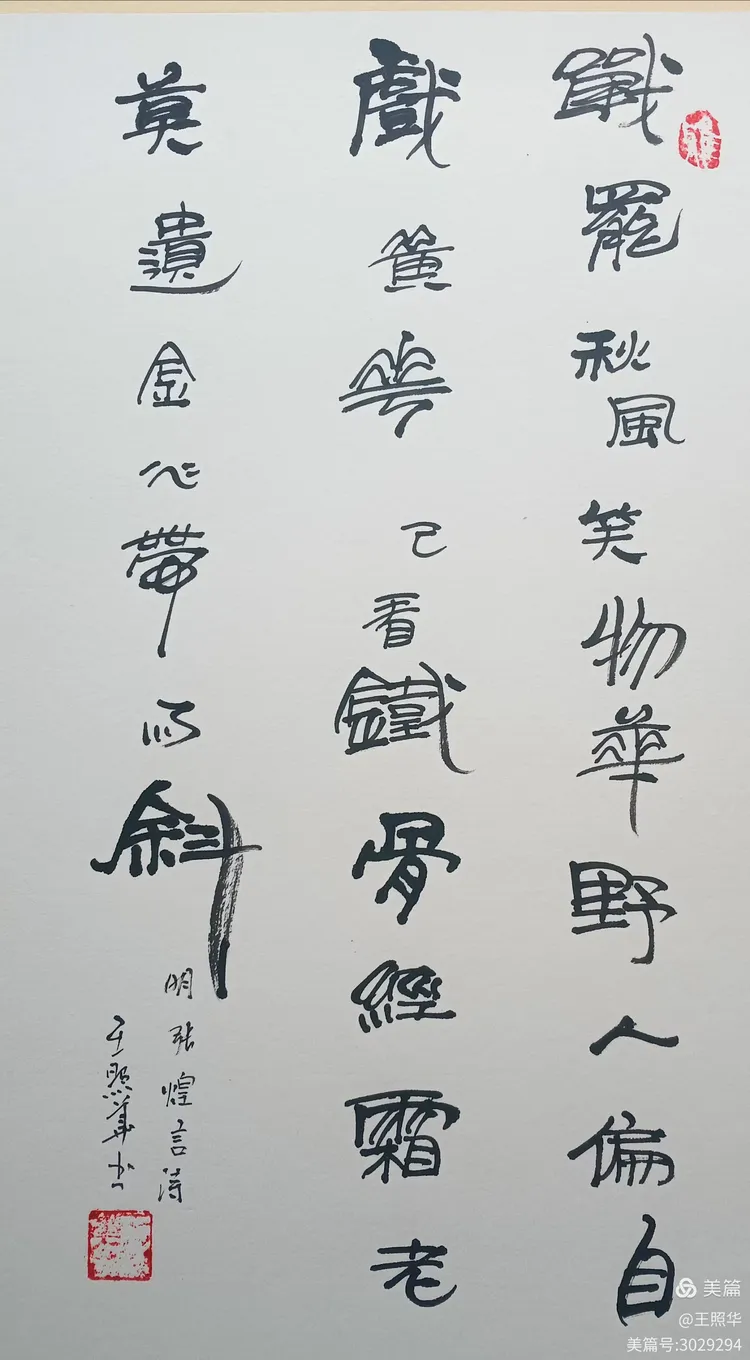 戰罷秋風笑物華野人偏自
戲黃花已看鐵骨經霜老
莫遺金心帶雨斜
明張煌言詩
王照華書
美篇
@王照华
美篇号:3029294